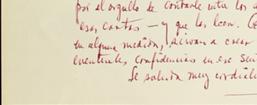 por el orgullo de contarle entre los a
esas cartas — y que las lean. Co
en alguna medida, sirvan a crear
eventuales, confidencias en ese sen
Le saluda muy cordial